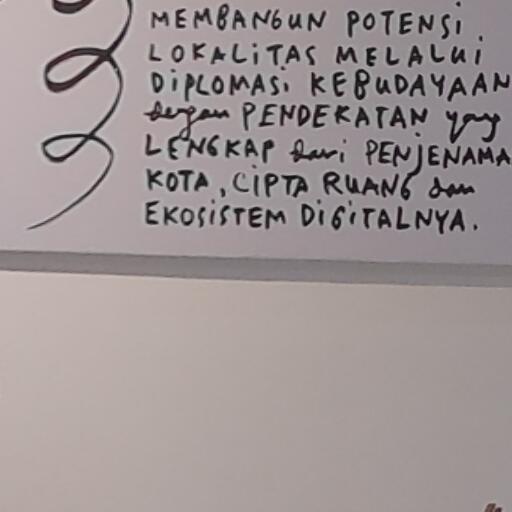 MEMBANGUN POTENSI
LOKALITAS MELALUI
DIPLOMASI KEBUDAYAAN
dengan PENDEKATAN yang
LENGKAP dari PENJENAMA
KOTA, CIPTA RUANG dan
EKOSISTEM DIGITALNYA.